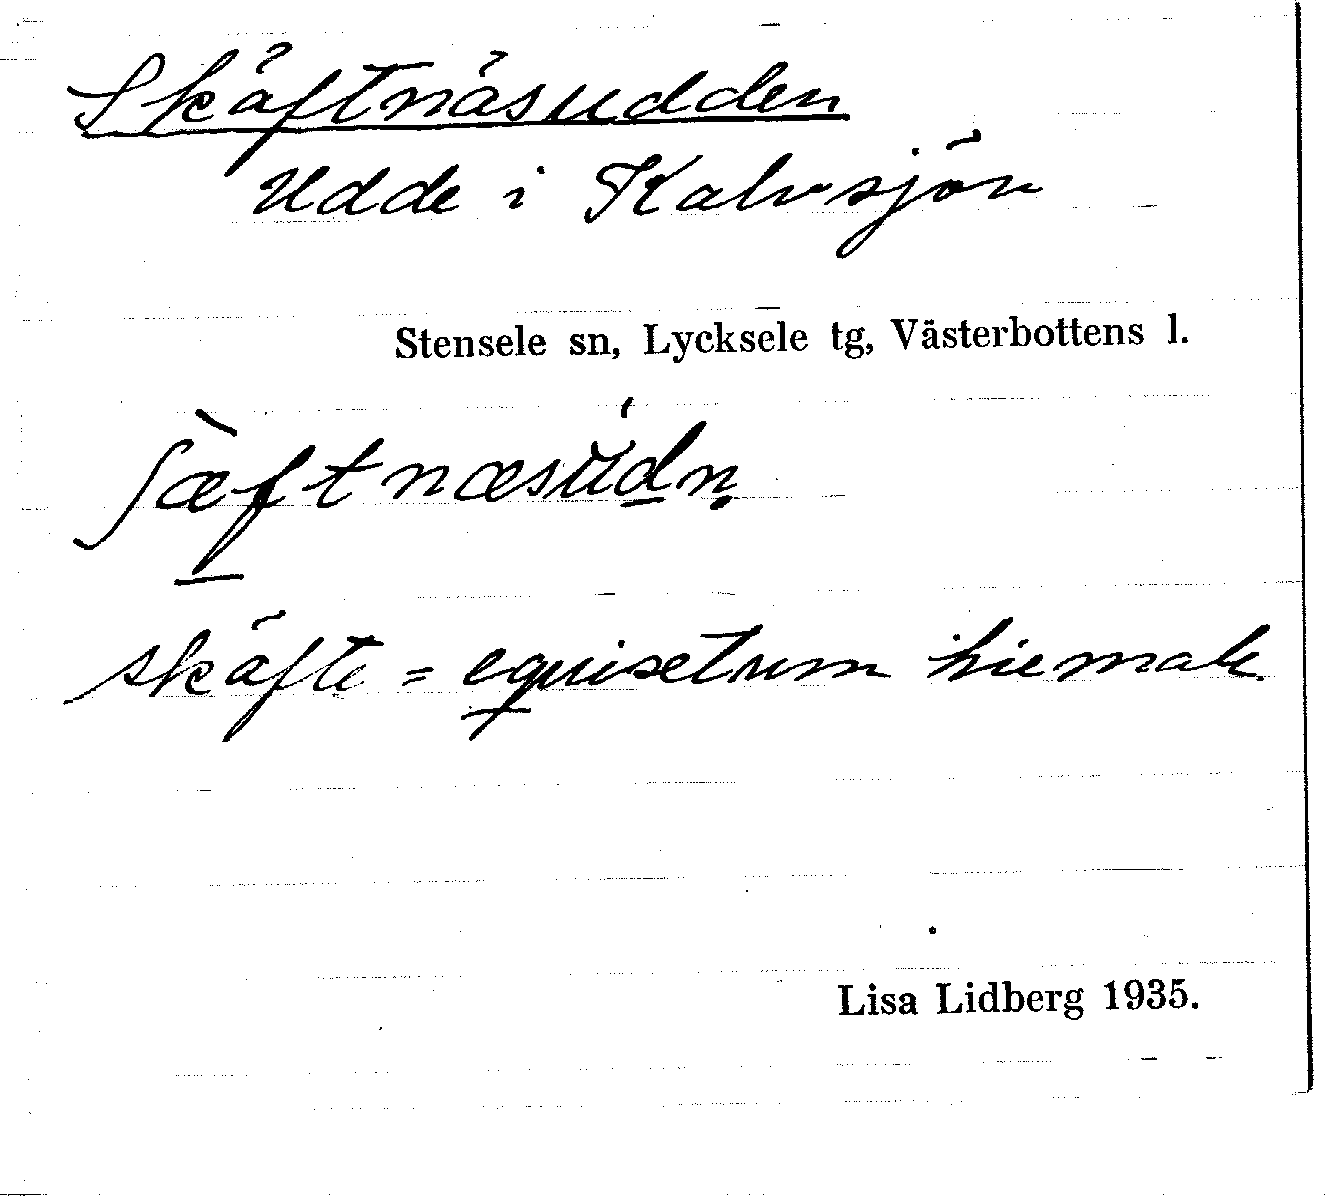 Skäftnäsudden
Udde i Kalvsjön
Stensele sn, Lycksele tg, Västerbottens l.
ʃæ̀ftnæsúdn̥
skäfte = equisetum hiemale
Lisa Lidberg 1935.